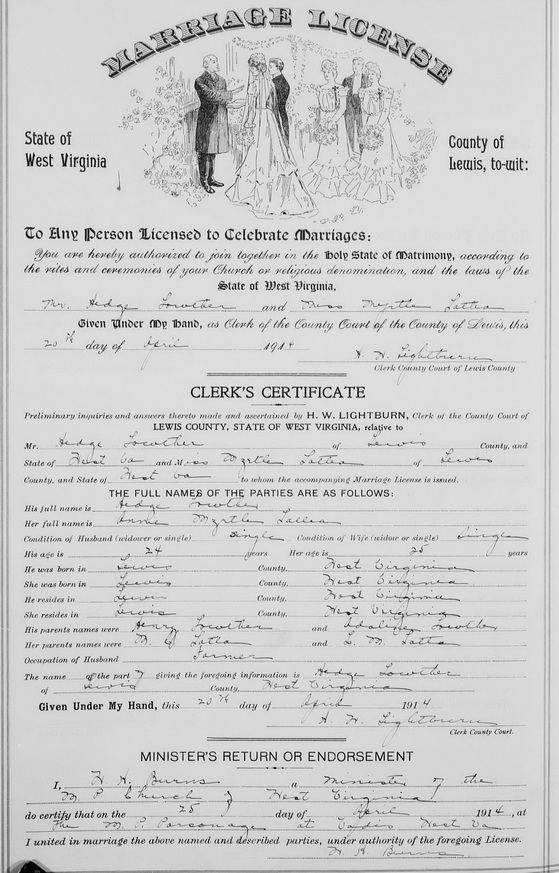 MARRIAGE LICENSE
State of
West Virginia
County of
Lewis, to-wit:
To Any Person Licensed to Celebrate Marriages:
You are hereby authorized to join together in the Holy State of Matrimony, according to
the rites and ceremonies of your Church or religious denomination, and the laws of the
State of West Virginia,
Mr. Hedge Lowther and Miss Myrtle Lattea
Given Under My Hand, as Clerk of the County Court of the County of Lewis, this
20th day of April 1914
H. W. Lightburn
Clerk County Court of Lewis County
CLERK'S CERTIFICATE
Preliminary inquiries and answers thereto made and ascertained by H. W. LIGHTBURN, Clerk of the County Court of
LEWIS COUNTY, STATE OF WEST VIRGINIA, relative to
Mr. Hedge Lowther of Lewis County, and
State of West Va and Miss Myrtle Lattea of Lewis
County, and State of West Va to whom the accompanying Marriage License is issued.
THE FULL NAMES OF THE PARTIES ARE AS FOLLOWS:
His full name is Hedge Lowther
Her full name is Annie Myrtle Lattea
Condition of Husband (widower or single) Single Condition of Wife (widow or single) Single
His age is 24 years Her age is 25 years
He was born in Lewis County, West Virginia
She was born in Lewis County, West Virginia
He resides in Lewis County, West Virginia
She resides in Lewis County, West Virginia
His parents names were Henry Lowther and Adaline Lowther
Her parents names were M. Lattea and L. M. Lattea
Occupation of Husband Farmer
The name of the party giving the foregoing information is Hedge Lowther
of Lewis County, West Virginia
Given Under My Hand, this 20th day of April 1914
H. W. Lightburn
Clerk County Court.
MINISTER'S RETURN OR ENDORSEMENT
I, H. H. Burns a Minister of the
M. P. Church of West Virginia
do certify that on the 25 day of April 1914, at
the M. P. Parsonage at Vadis West Va
I united in marriage the above named and described parties, under authority of the foregoing License.
H. H. Burns